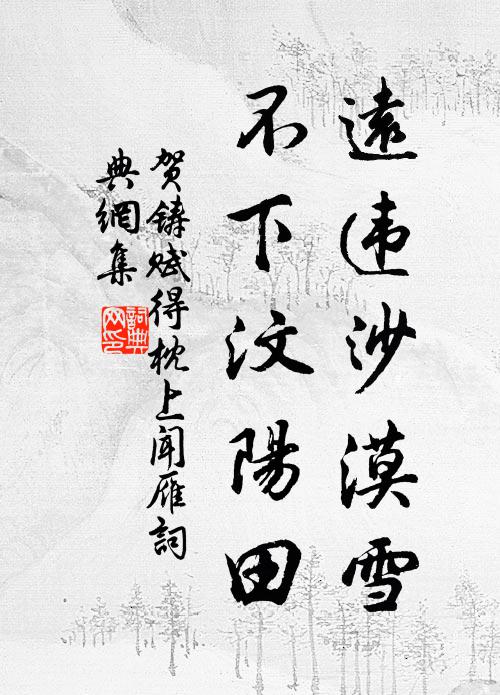 遠违沙漠雪
不下汶陽田
贺鑄赋得枕上闻雁詞
典網集
詞典
网印